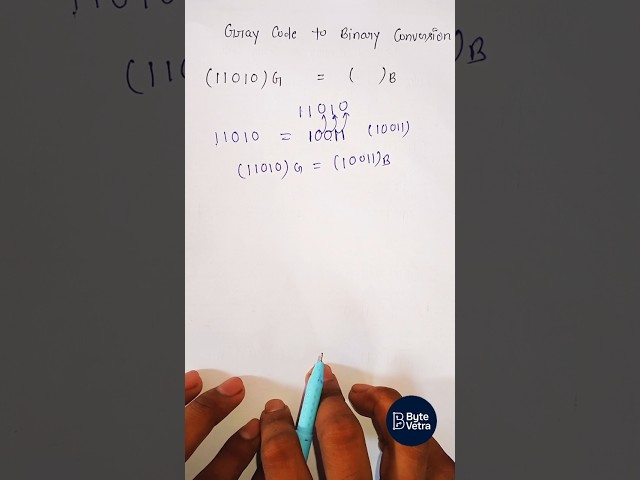 Gray Code to Binary Conversion
(11010)G = ( )B
11010
11010 = 10011 (10011)
(11010)G = (10011)B
Byte
Vetra